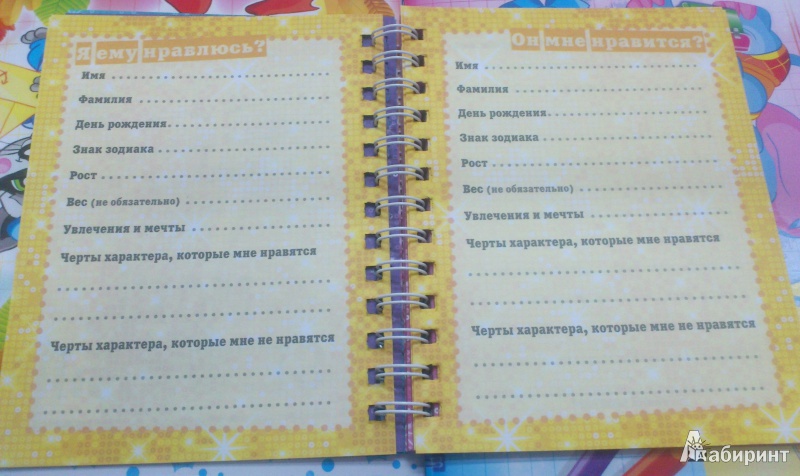 Я ему нравлюсь?
Имя
Фамилия
День рождения
Знак зодиака
Рост
Вес (не обязательно)
Увлечения и мечты
Черты характера, которые мне нравятся
Черты характера, которые мне не нравятся
Он мне нравится?
Имя
Фамилия
День рождения
Знак зодиака
Рост
Вес (не обязательно)
Увлечения и мечты
Черты характера, которые мне нравятся
Черты характера, которые мне не нравятся
Лабиринт